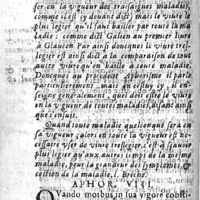 ſer en la vehemente, & aigues maladies,
comme il eſt cy deuant dict, mais le viure le
plus legier qu'il faut bailler par toute la ma
ladie: comme dict Galien au premier liure
à Glaucon. Par ainſi doncques le viure treſ-
legier eſt ainſi dict à la comparaiſon de tout
autre viure qu'on baille à toute maladie.
Doncques au precedent Aphoriſme il parle
particulierement, mais en ceſtuy cy, il en-
ſeigne generalement, quel doit eſtre le viure
en la vigueur de toutes maladies, diſant ainſi
que s'enſuit.
Quand toute maladie quelconque ſera en ſa
vigueur, alors en toute la vigueur eſt ne-
ceſſaire vſer de viure treſlegier, c'eſt à ſçauoir
plus legier qu'aux autres temps de la meſme
maladie, pour la grandeur des ſymptomes &
coction de la maladie.
APHOR. VIII.
QVando morbus in ſua vigore conſti-